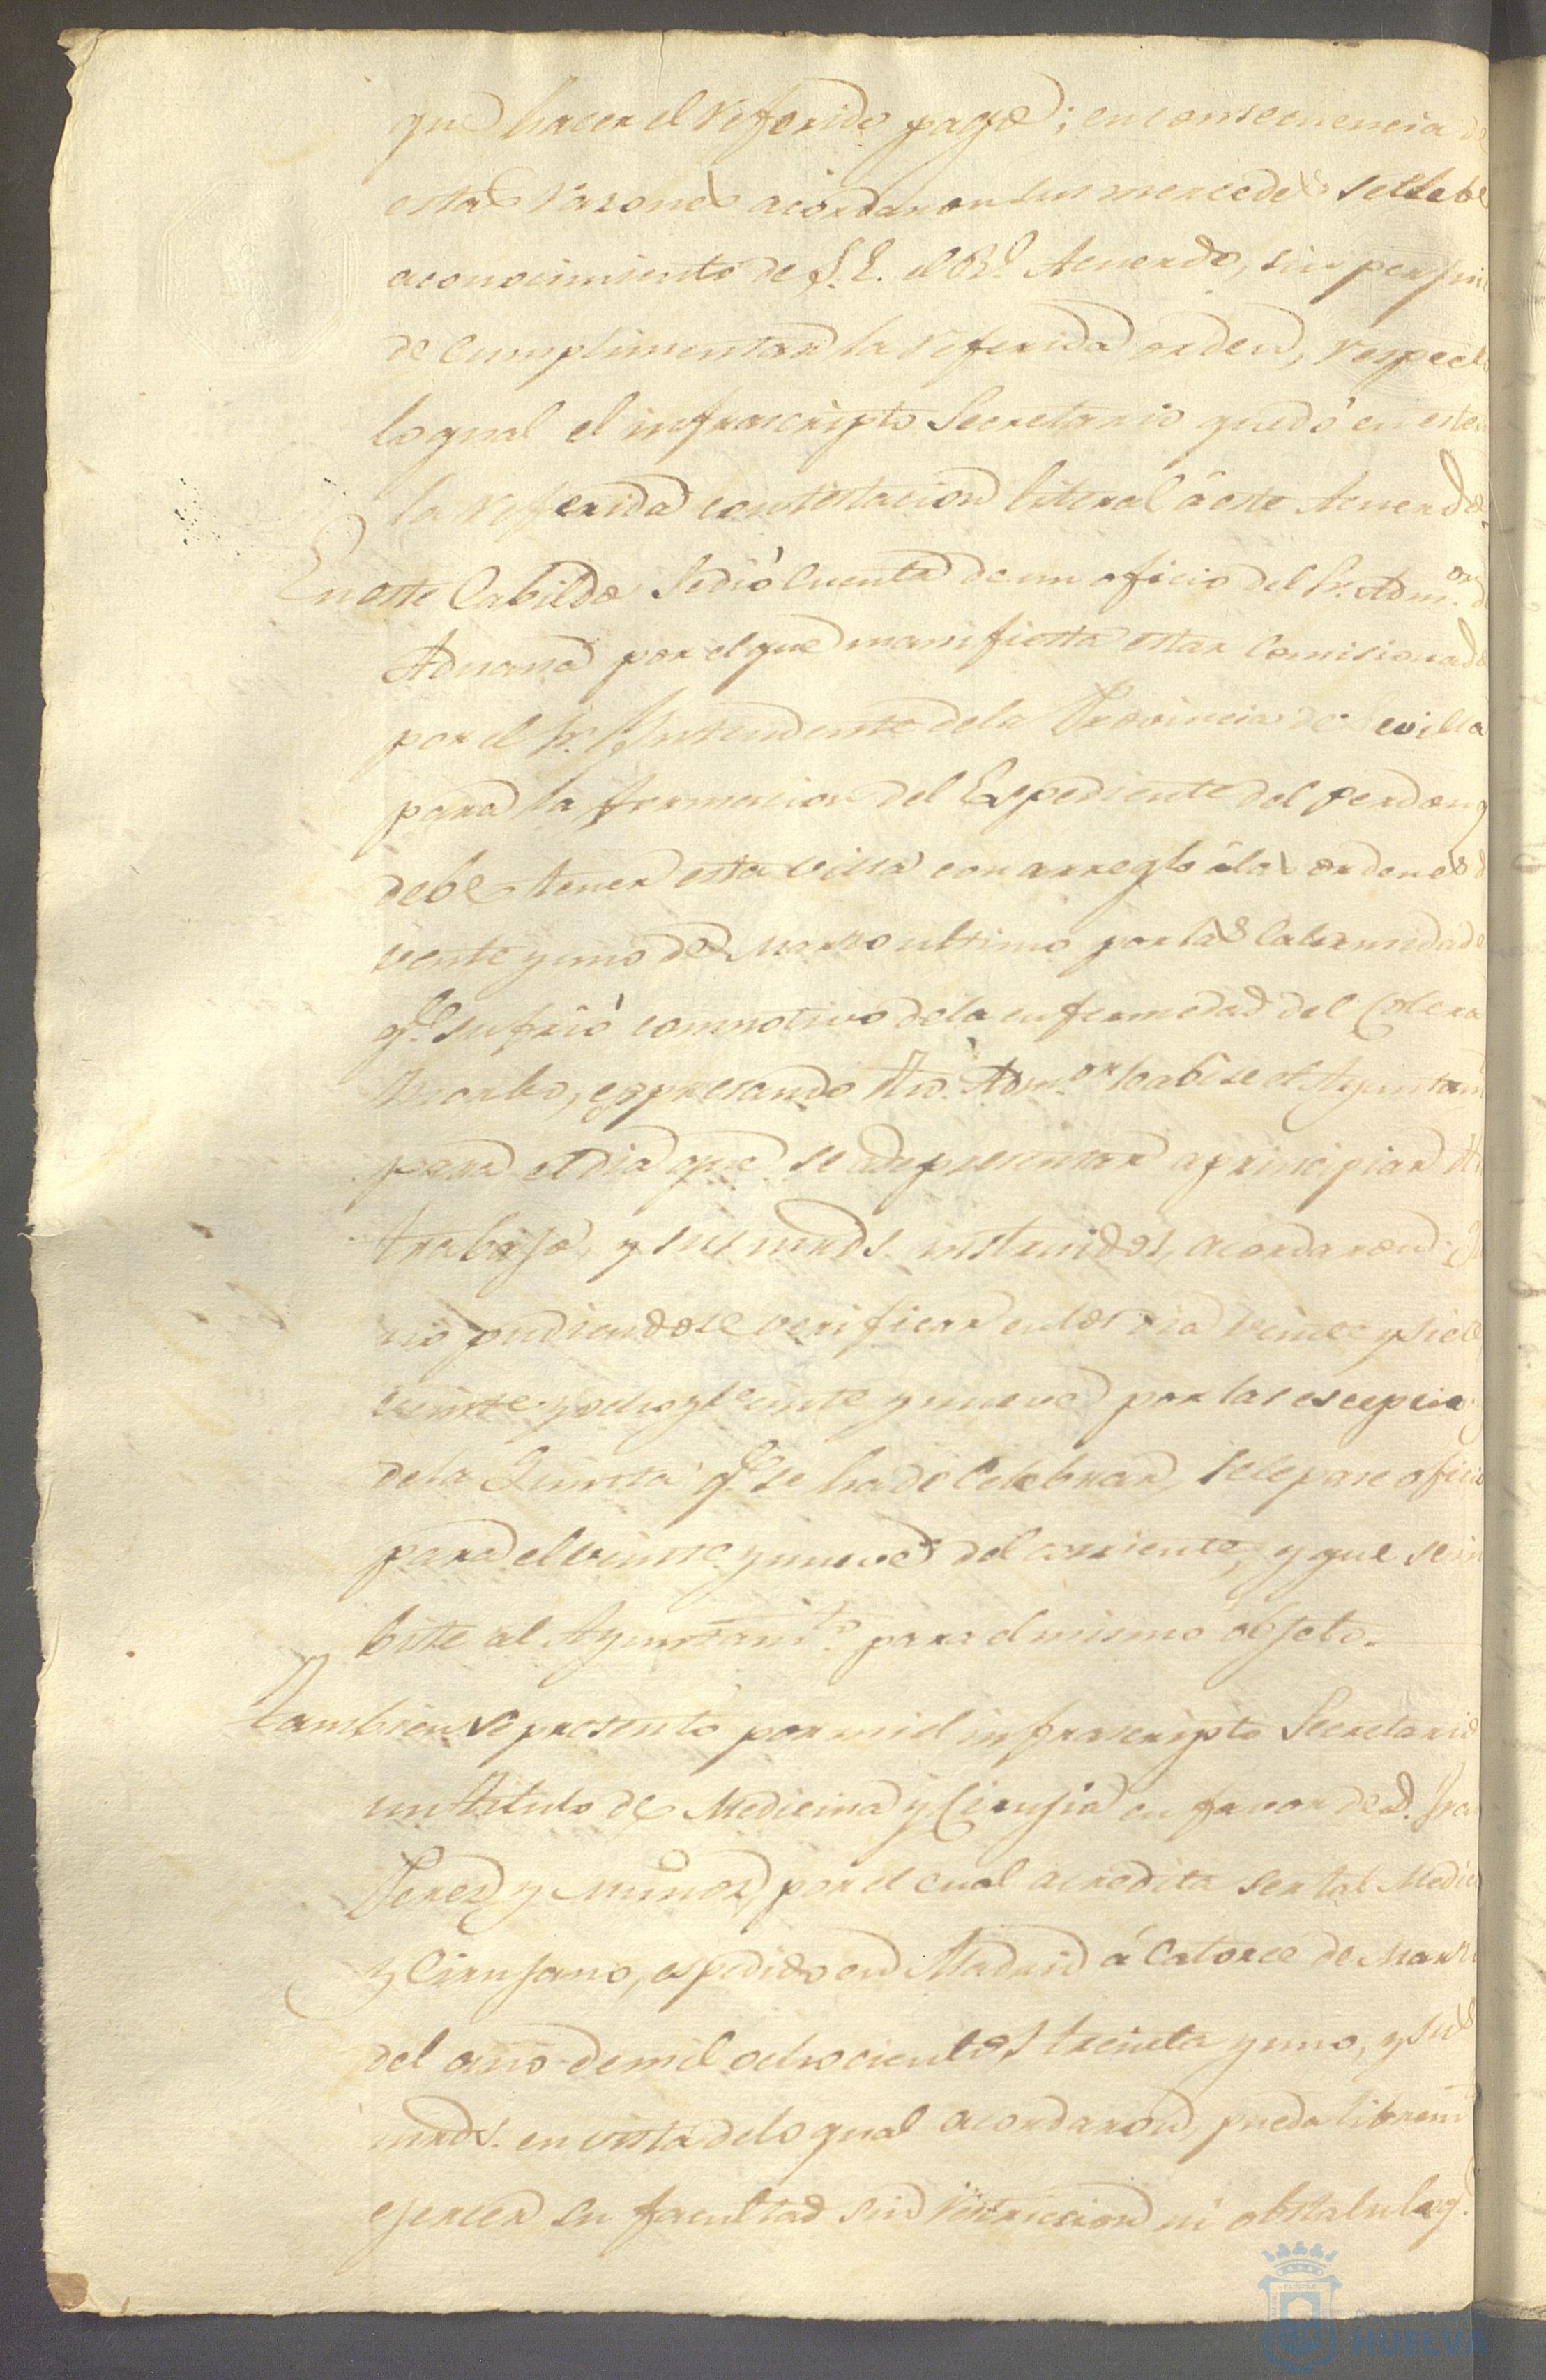 que hacer el referido pago; en consecuencia de
estas razones acordaron sus mercedes se llebe
a conocimiento de S. E. el Rl. Acuerdo, sin perjui
de cumplimentar la referida orden, respect
lo qual el infrascripto Secretario quedó en
la referida contestacion literal á este Acuerdo.
En este Cabildo se dió cuenta de un oficio del Sr. Admor. de
Aduana por el que manifiesta estar comisionado
por el Sr. Intendente de la Provincia de Sevilla
para la formacion del Espediente del perdon q
debe tener esta villa con arreglo á las ordenes d
veinte y uno de Marzo ultimo por las calamidade
qe. sufrió con motivo de la enfermedad del Colera
Morbo, espresando dho. Admor. habise el Ayuntam
para el dia que se ade presentar a principiar dho
trabajo, y sus mrds. instruidos, acordaron: Q
no pudiendose verificar en los dia veinte y siete
veinte y ocho y veinte y nueve por las escepcio
de la Quinta qe. se ha de Celebrar, se le pase oficio
para el veinte y nueve del corriente, y que se in
bite al Ayuntamto. para el mismo objeto.
Tambien se presentó por mi el infrascripto Secretario
un titulo de Medicina y Cirujia en favor de D. Fran
Perez y Muñoz, por el cual acredita ser tal Medico
y Cirujano, espedido en Madrid á Catorce de Marzo
del año de mil ochocientos treinta y uno, y sus
mrds. en vista de lo qual acordaron, pueda librem
ejercer su facultad sin restriccion ni obstaculo q.
HUELVA